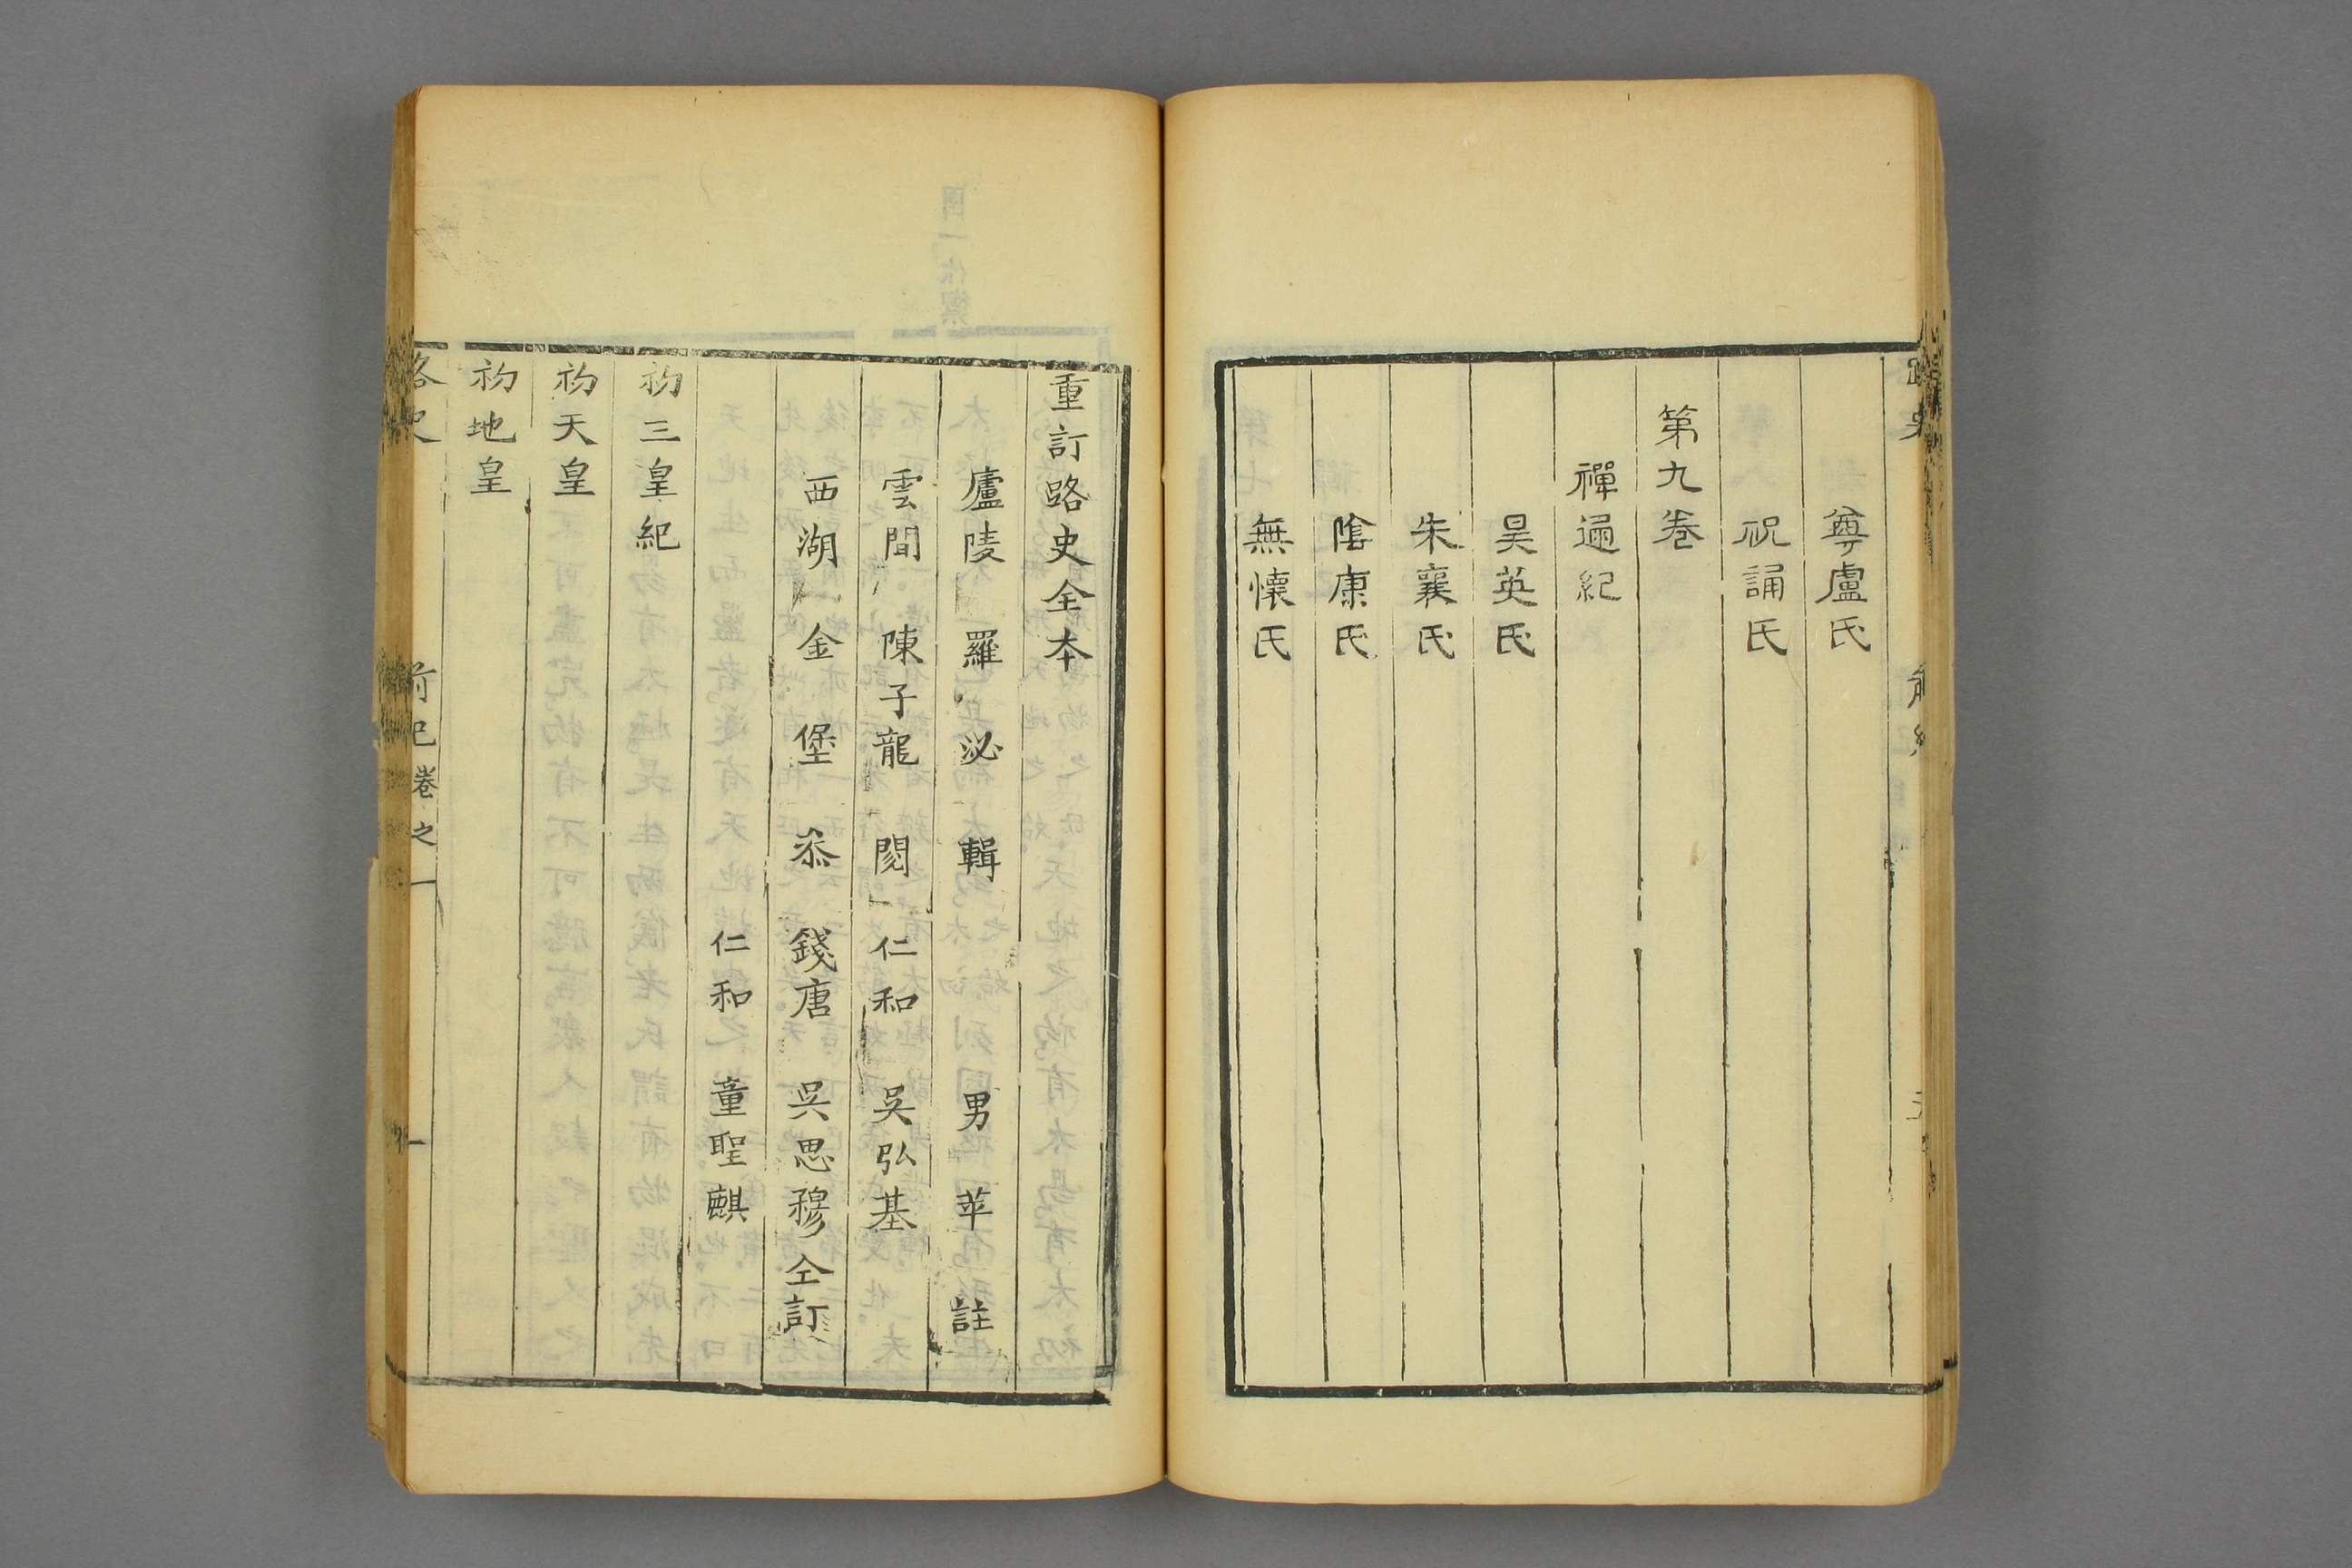 尊盧氏
祝誦氏
第九卷
禪通紀
昊英氏
朱襄氏
陰康氏
無懷氏
重訂路史全本
廬陵 羅 泌 輯 男 苹 註
雲間 陳子龍 閱 仁和 吳弘基
西湖 金 堡 叅 錢唐 吳思穆仝訂
仁和 童聖麒
初三皇紀
初天皇
初地皇
路史 前紀卷之一 一